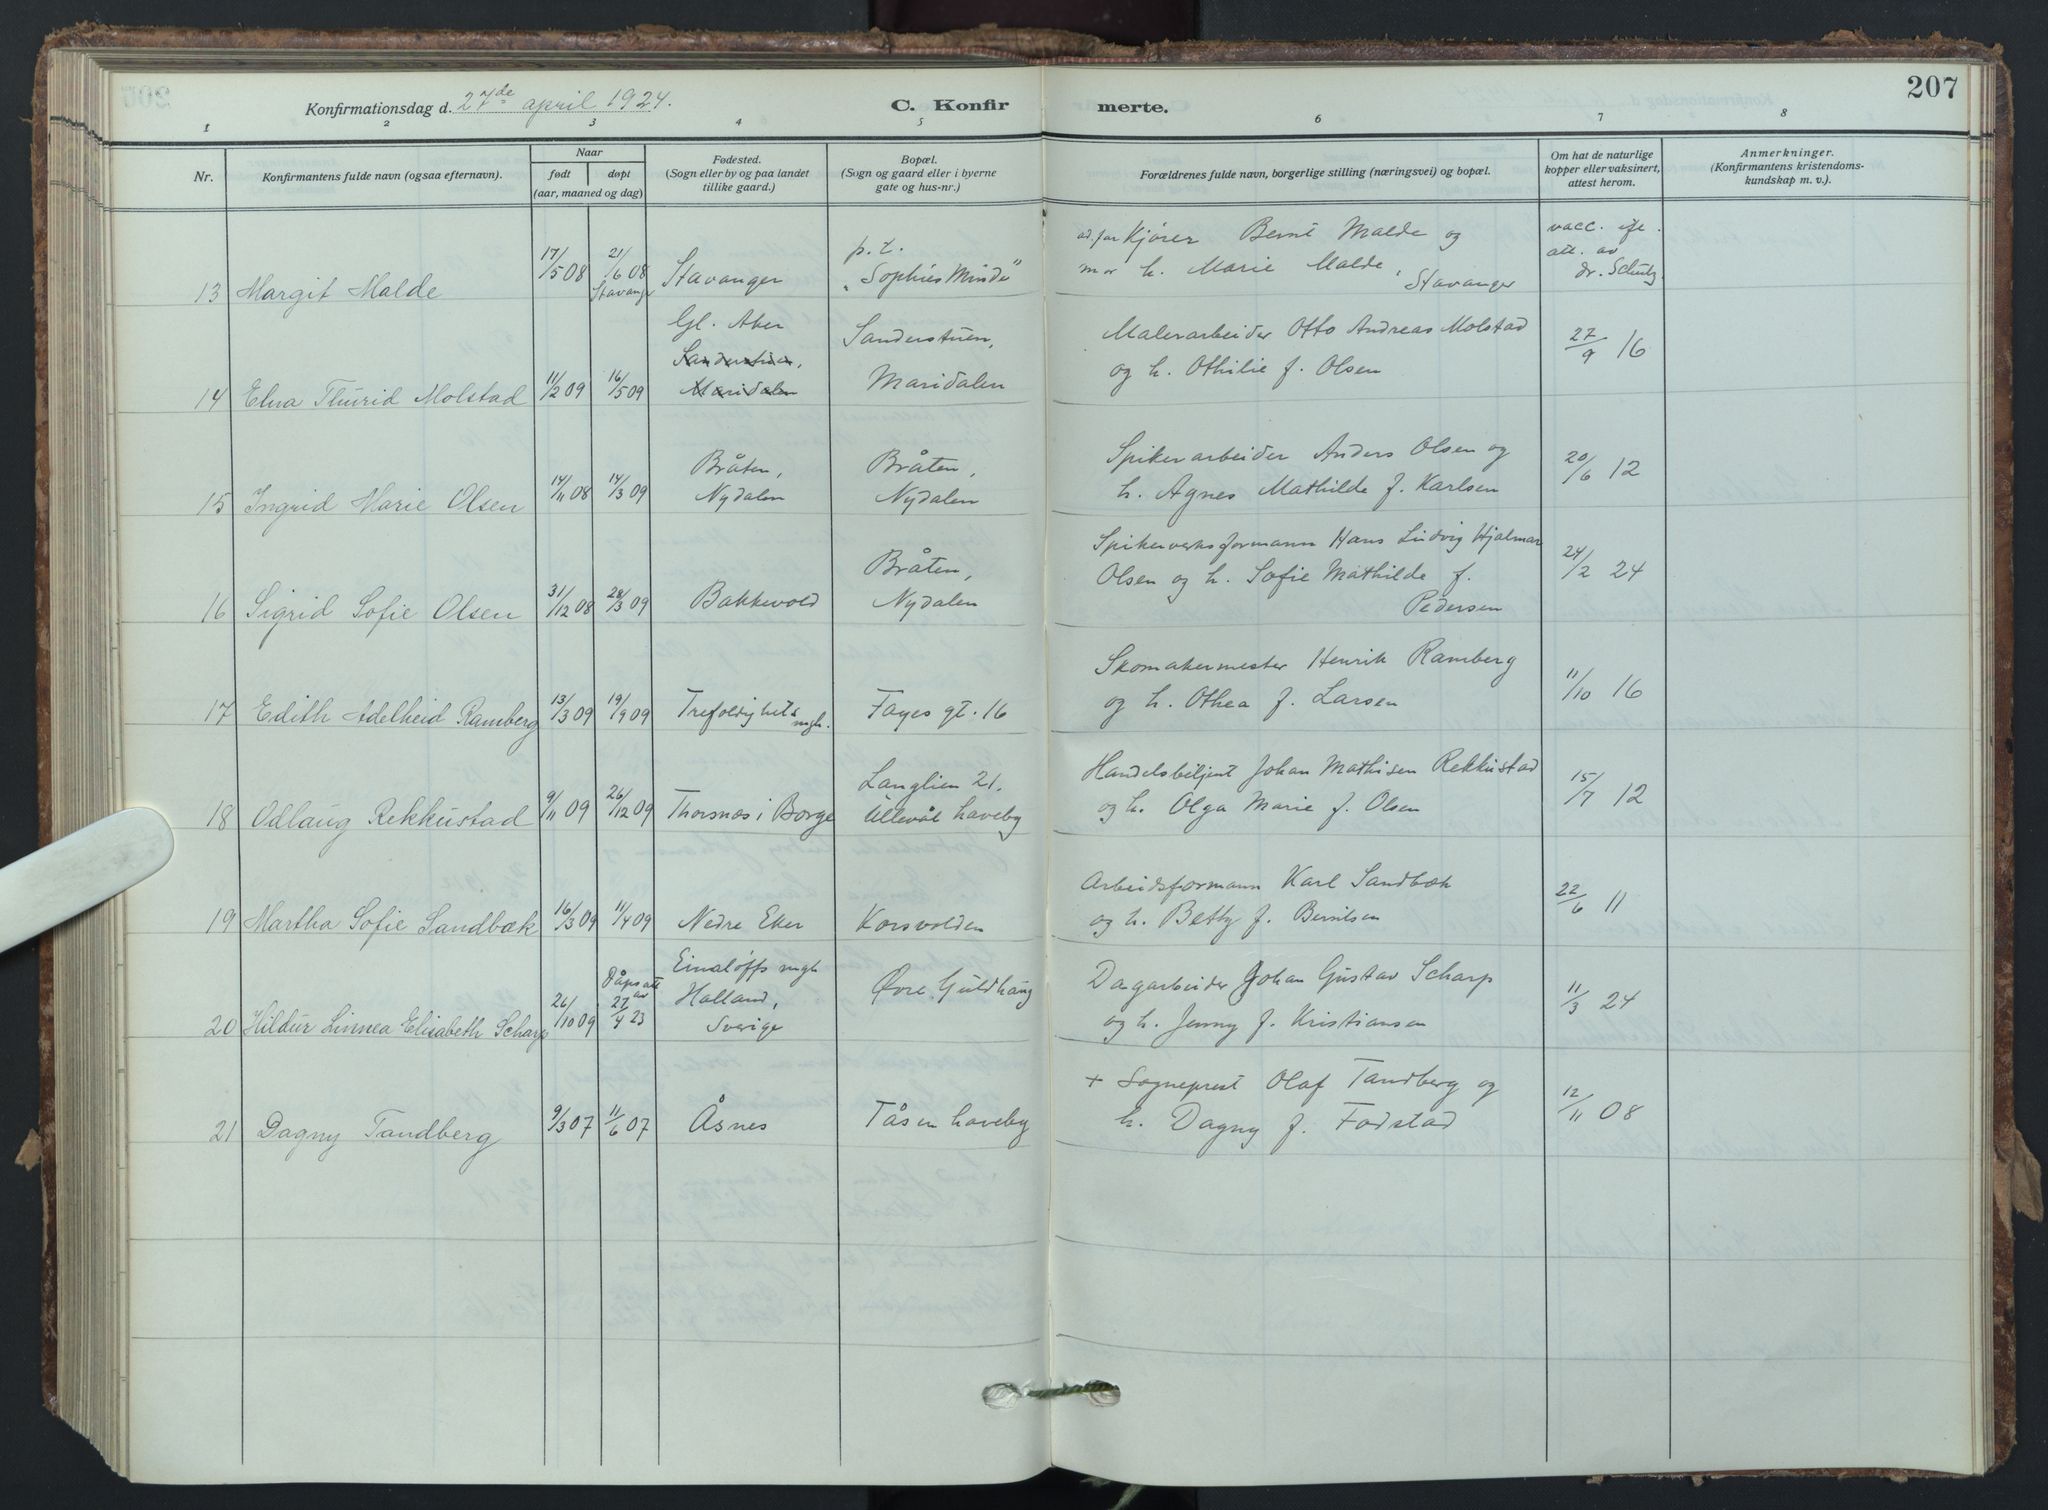 207
Konfirmationsdag d. 27de april 1924.
C. Konfirmerte.
1 2 3 4 5 6 7 8
Nr.
Konfirmantens fulde navn (ogsaa efternavn).
Naar
født
døpt
(aar, maaned og dag)
Fødested.
(Sogn eller by og paa landet
tillike gaard.)
Bopæl.
(Sogn og gaard eller i byerne
gate og hus-nr.)
Forældrenes fulde navn, borgerlige stilling (næringsvei) og bopæl.
Om hat de naturlige
kopper eller vaksinert,
attest herom.
Anmerkninger.
(Konfirmantens kristendoms-
kundskap m. v.).
13 Margit Malde
17/5 08
21/6 08
Stavanger
Stavanger
p. t.
"Sophies Minde"
ad. far Kjører Bernt Malde og
mor h. Marie Malde, Stavanger
vacc. ifl.
att. av
dr. Schultz
14 Elna Thurid Molstad
11/2 09
16/5 09
Gl. Aker
Sanderstuen,
Maridalen
Sanderstuen,
Maridalen
Malerarbeider Otto Andreas Molstad
og h. Othilie f. Olsen
27/9 16
15 Ingrid Marie Olsen
14/11 08
14/3 09
Bråten,
Nydalen
Bråten,
Nydalen
Spikerarbeider Anders Olsen og
h. Agnes Mathilde f. Karlsen
20/6 12
16 Sigrid Sofie Olsen
31/12 08
28/3 09
Bakkevold
Bråten,
Nydalen
Spikerverksformann Hans Ludvig Hjalmar
Olsen og h. Sofie Mathilde f.
Pedersen
24/2 24
17 Edith Adelheid Ramberg
13/3 09
19/9 09
Trefoldighets
mgh.
Fayes gt. 16
Skomakermester Henrik Ramberg
og h. Othea f. Larsen
11/10 16
18 Odlaug Rekkustad
9/11 09
26/12 09
Thorsnæs i Borge
Langlien 21,
Ullevål haveby
Handelsbetjent Johan Mathisen Rekkustad
og h. Olga Marie f. Olsen
15/7 12
19 Martha Sofie Sandbæk
16/3 09
11/4 09
Nedre Eker
Korsvolden
Arbeidsformann Karl Sandbæk
og h. Betty f. Berntsen
22/6 11
20 Hildur Linnea Elisabeth Scharp
26/10 09
Dåpsatt
av
27/4 23
mgh
Halland,
Sverige
Øvre Guldhaug
Dagarbeider Johan Gustav Scharp
og h. Jenny f. Kristiansen
11/3 24
21 Dagny Tandberg
9/3 07
11/6 07
Åsnes
Tåsen haveby
+ Sogneprest Olaf Tandberg og
h. Dagny f. Fodstad
12/11 08